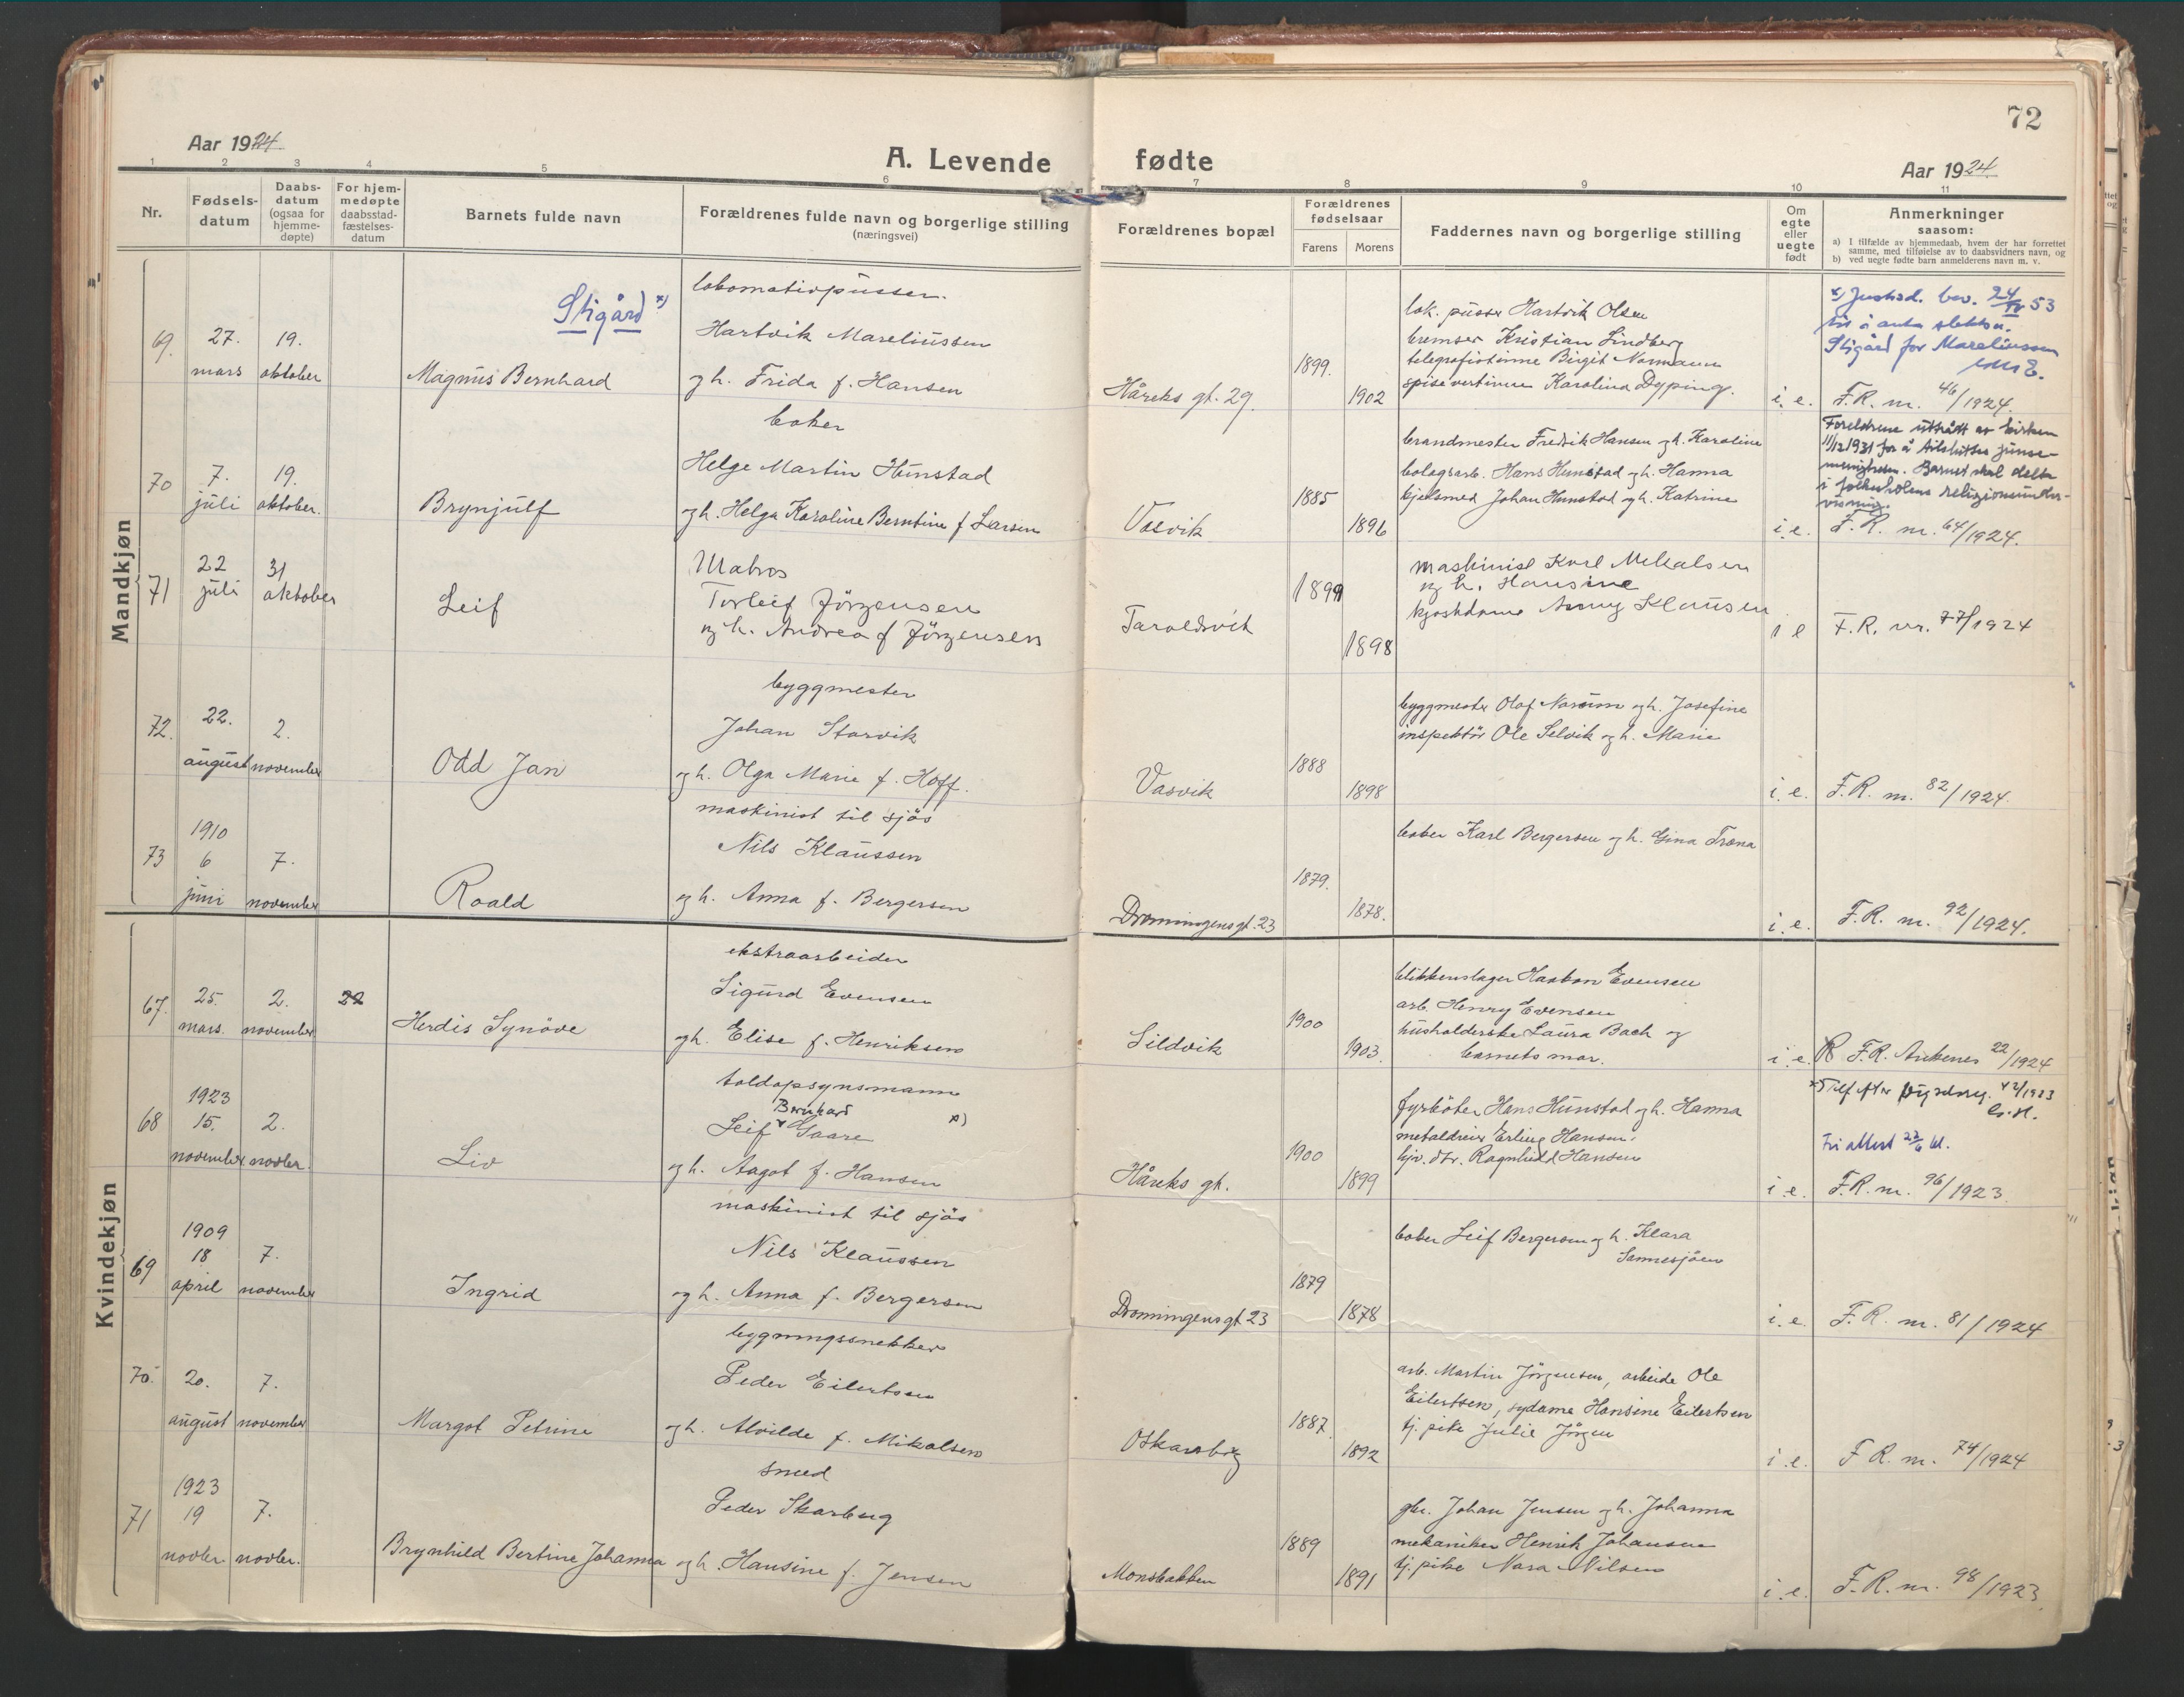 72
Aar 1924.
A. Levende fødte
Aar 1924.
1 2 3 4 5 6 7 8 9 10 11
Nr.
Fødsels-
datum
Daabs-
datum
(ogsaa for
hjemme-
døpte)
For hjem-
medøpte
daabsstad-
fæstelses-
datum
Barnets fulde navn
Forældrenes fulde navn og borgerlige stilling
(næringsvei)
Forældrenes bopæl
Forældrenes
fødselsaar
Farens Morens
Faddernes navn og borgerlige stilling
Om
egte
eller
uegte
født
Anmerkninger
saasom:
a) I tilfælde av hjemmedaab, hvem der har forrettet
samme, med tilføielse av to daabsvidners navn, og
b) ved uegte fødte barn anmelderens navn m. v.
Mandkjøn
69.
27.
mars
19.
oktober
Stigård x)
Magnus Bernhard
lokomotivpusser.
Hartvik Mareliussen
og h. Frida f. Hansen
Håreks gt. 29.
1899.
1902
lok. pusser Hartvik Olsen
bremser Kristian Lindberg
telegrafistinne Birgit Normann
spisevertinne Karolina Dyping.
i. e.
x) Justisd. bev. 24 53
til å anta slektsn.
Stigård for Mareliussen
F.R. nr. 46/1924.
70
7.
juli
19.
oktober.
Brynjulf
Helge Martin Hunstad
og h. Helga Karoline Berntine f Larsen
Vasvik
1885
1896
brandmester Fredrik Hansen og h. Karoline
bologsarb. Hans Hunstad og h. Hanna
kjelsmed Johan Hunstad og h. Katrine
i. e.
Foreldrene uttrått av kirken
11/12 1931 for å tilsluttes pinse-
menigheten. Barnet skal delta
i folkeskolens religionsunder-
visning.
F.R. nr. 64/1924.
71
22
juli
31
oktober
Leif
Matros
Torleif Jörgensen
og h. Andrea f Jörgensen
Taraldsvik
1899
1898
maskinist Karl Mikalsen
og h. Hansine
kjoskdame Anny Klausen
i e
F.R. nr. 77/1924
72.
22.
august
2.
november
Odd Jan
byggmester
Johan Storvik
og h. Olga Marie f. Hoff.
Vasvik
1888
1898
byggmester Olaf Norum og h. Josefine
inspektör Ole Selvik og h. Marie
i. e.
F.R. nr. 82/1924.
73
1910
6
juni
7.
november
Roald
maskinist til sjös
Nils Klaussen
og h. Anna f. Bergersen
Dronningensgt. 23
1879.
1878.
Karl Bergersen og h. Gina Træna
i. e.
F.R. nr. 92/1924.
Kvindekjøn
67.
25.
mars.
2.
november
22
Herdis Synöve
ekstraarbeider
Sigurd Evensen
og h. Elise f. Henriksen
Sildvik
1900
1903.
blikkenslager Haakon Evensen
arb. Henry Evensen
husholderske Laura Bach og
barnets mor.
i. e.
F.R. Ankenes 22/1924
68
1923
15.
november
2.
novbr.
Liv
toldopsynsmann
Bernhard
Leif Gaare x)
og h. Aagot f. Hansen
Håreks gt.
1900
1899
fyrböter Hans Hunstad og h. Hanna
metaldreier Erling Hansen.
hjv. dtr. Ragnhild Hansen
i. e.
Fri attest
F.R. nr. 96/1923.
69
1909
18
april
7.
november
Ingrid
maskinist til sjös
Nils Klaussen
og h. Anna f. Bergersen
Dronningensgt 23
1879
1878
Leif Bergersen og h. Klara
Sannesjöen
i. e.
F.R. nr. 81/1924
70.
20.
august
7.
november
Margot Petrine
bygningssnekker
Peder Eilertsen
og h. Alvilde f. Mikalsen
Oskarsborg
1887
1892
arb. Martin Jörgensen, arbeide Ole
Eilertsen, sydame Hansine Eilertsen
tj. pike Julie Jörgen
i. e.
F R. nr. 74/1924
71
1923
19
novbr.
7.
novbr.
Brynhild Bertine Johanna
smed
Peder Skarberg
og h. Hansine f. Jensen
Monsbakken
1889
1891
gbr. Johan Jensen og h. Johanna
mekaniker Henrik Johansen
tj. pike Nara Nilsen
i. e.
F.R. nr. 98/1923.